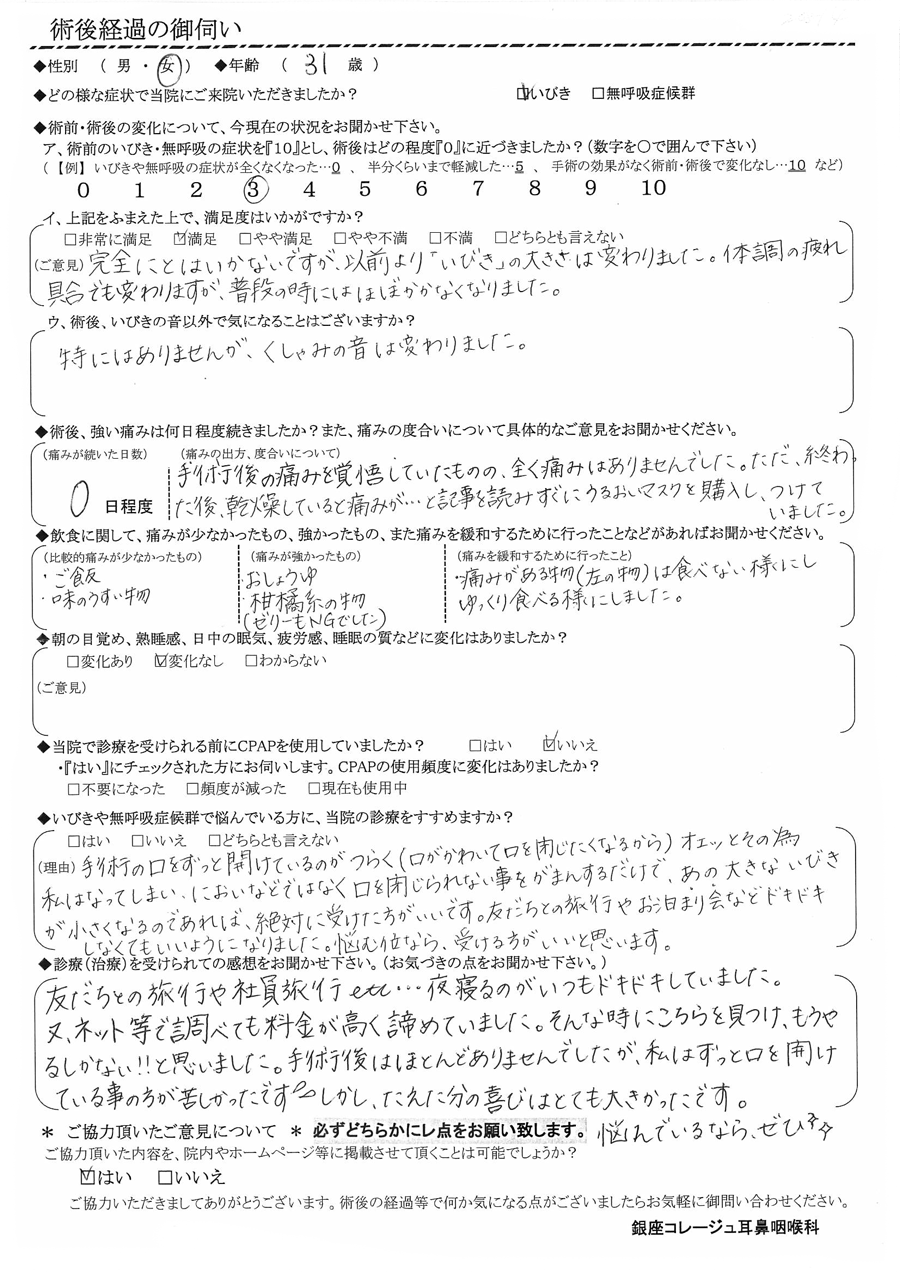 術後経過の御伺い
◆性別 ( 男 ・ 女 ) ◆年齢 ( 31 歳 )
◆どの様な症状で当院にご来院いただきましたか? ☑いびき □無呼吸症候群
◆術前・術後の変化について、今現在の状況をお聞かせ下さい。
ア、術前のいびき・無呼吸の症状を『10』とし、術後はどの程度『0』に近づきましたか?(数字を〇で囲んで下さい)
(【例】いびきや無呼吸の症状が全くなくなった…0 、 半分くらいまで軽減した…5 、 手術の効果がなく術前・術後で変化なし…10 など)
0 1 2 ③ 4 5 6 7 8 9 10
イ、上記をふまえた上で、満足度はいかがですか?
□非常に満足 ☑満足 □やや満足 □やや不満 □不満 □どちらとも言えない
(ご意見) 完全にとはいかないですが、以前より「いびき」の大きさは変わりました。体調の疲れ
具合でも変わりますが、普段の時にはほぼかかなくなりました。
ウ、術後、いびきの音以外で気になることはございますか?
特にはありませんが、くしゃみの音は変わりました。
◆術後、強い痛みは何日程度続きましたか?また、痛みの度合いについて具体的なご意見をお聞かせください。
(痛みが続いた日数) (痛みの出方、度合いについて)
0 日程度
手術後の痛みを覚悟していたものの、全く痛みはありませんでした。ただ、終わっ
た後、乾燥していると痛みが…と記事を読みすぐにうるおいマスクを購入し、つけて
いました。
◆飲食に関して、痛みが少なかったもの、強かったもの、また痛みを緩和するために行ったことなどがあればお聞かせください。
(比較的痛みが少なかったもの) (痛みが強かったもの) (痛みを緩和するために行ったこと)
・ご飯 おしょうゆ ・痛みがある物(左の物)は食べない様にし
・味のうすい物 ・柑橘系の物 ゆっくり食べる様にしました。
(ゼリーもNGでした)
◆朝の目覚め、熟睡感、日中の眠気、疲労感、睡眠の質などに変化はありましたか?
□変化あり ☑変化なし □わからない
(ご意見)
◆当院で診療を受けられる前にCPAPを使用していましたか? □はい ☑いいえ
・『はい』にチェックされた方にお伺いします。CPAPの使用頻度に変化はありましたか?
□不要になった □頻度が減った □現在も使用中
◆いびきや無呼吸症候群で悩んでいる方に、当院の診療をすすめますか?
□はい □いいえ □どちらとも言えない
(理由) 手術の口をずっと開けているのがつらく(口がかわいて口を閉じたくなるから)オエッとその為
私はなってしまい、においなどではなく口を閉じられない事をがまんするだけで、あの大きないびき
が小さくなるのであれば、絶対に受けた方がいいです。友だちとの旅行やお泊まり会などドキドキ
しなくてもいいようになりました。悩む位なら、受ける方がいいと思います。
◆診療(治療)を受けられての感想をお聞かせ下さい。(お気づきの点をお聞かせ下さい。)
友だちとの旅行や社員旅行etc…夜寝るのがいつもドキドキしていました。
又、ネット等で調べても料金が高く諦めていました。そんな時にこちらを見つけ、もうや
るしかない!!と思いました。手術後はほとんどありませんでしたが、私はずっと口を開け
ている事の方が苦しかったです しかし、たえた分の喜びはとても大きかったです。
悩んでいるなら、ぜひ
* ご協力頂いたご意見について * 必ずどちらかにレ点をお願い致します。
ご協力頂いた内容を、院内やホームページ等に掲載させて頂くことは可能でしょうか?
☑はい □いいえ
ご協力いただきましてありがとうございます。術後の経過等で何か気になる点がございましたらお気軽に御問い合わせください。
銀座コレージュ耳鼻咽喉科